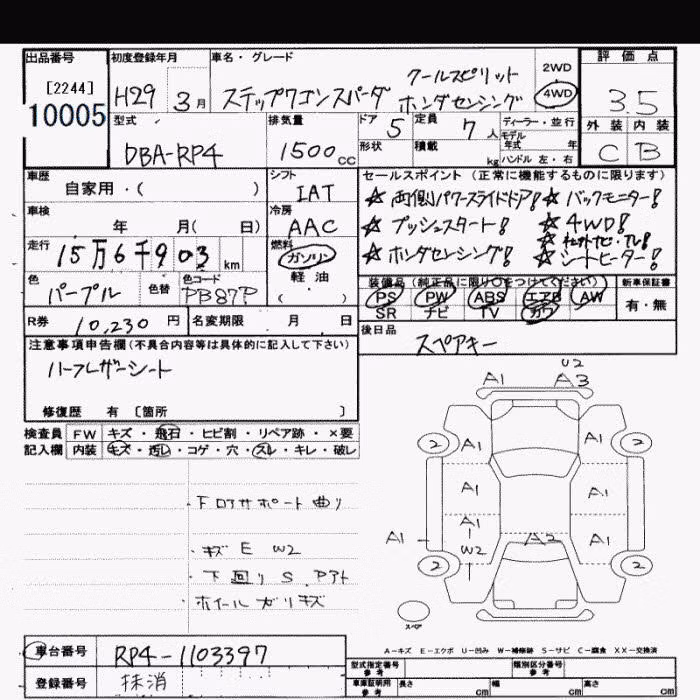 出品番号 初度登録年月 車名・グレード 評価点
[2244] クールスピリット 2WD
10005 H29 3月 ステップワゴンスパーダ ホンダセンシング 4WD 3.5
型式 排気量 ドア 5 定員 7人 ディーラー・並行 外装 内装
DBA-RP4 1500cc 形状 積載 kg モデル年式 年 C B
ハンドル 左・右
車歴 シフト セールスポイント (正常に機能するものに限ります)
自家用・( ) IAT ☆両側パワースライドドア! ☆バックモニター!
車検 冷房 ☆プッシュスタート! ☆4WD!
年 月(日) AAC ☆社外ナビ・TV!
走行 15万6千903km 燃料 ☆ホンダセンシング! ☆シートヒーター!
ガソリン
色 色替 色コード 軽油 装備品 (純正品に限り○をつけてください) 新車保証書
パープル PB87P ( ) PS PW ABS エアB AW 有・無
SR ナビ TV カワ
R券 10,230円 名変期限 月 日 後日品
スペアキー
注意事項申告欄(不具合内容等は具体的に記入して下さい)
ハーフレザーシート
修復歴 有 [箇所 ]
U2
A1 A3
検査員 FW キズ・飛石・ヒビ割・リペア跡・×要
記入欄 内装 キズ・汚レ・コゲ・穴・スレ・キレ・破レ
2 A1 A1 2
A1 A1
・下ロアサポート曲り
A1
A1 W2 A2 A1
・キズ E W2
2 2
・下回り S. Pアト
・ホイールガリキズ
スペア
A-キズ E-エクボ U-凹み W-補修跡 S-サビ C-腐食 XX-交換済
車台番号 RP4-1103397
登録番号 抹消
型式指定番号 参考 類別区分番号 参考
車庫証明用 参考 長さ cm 幅 cm 高さ cm